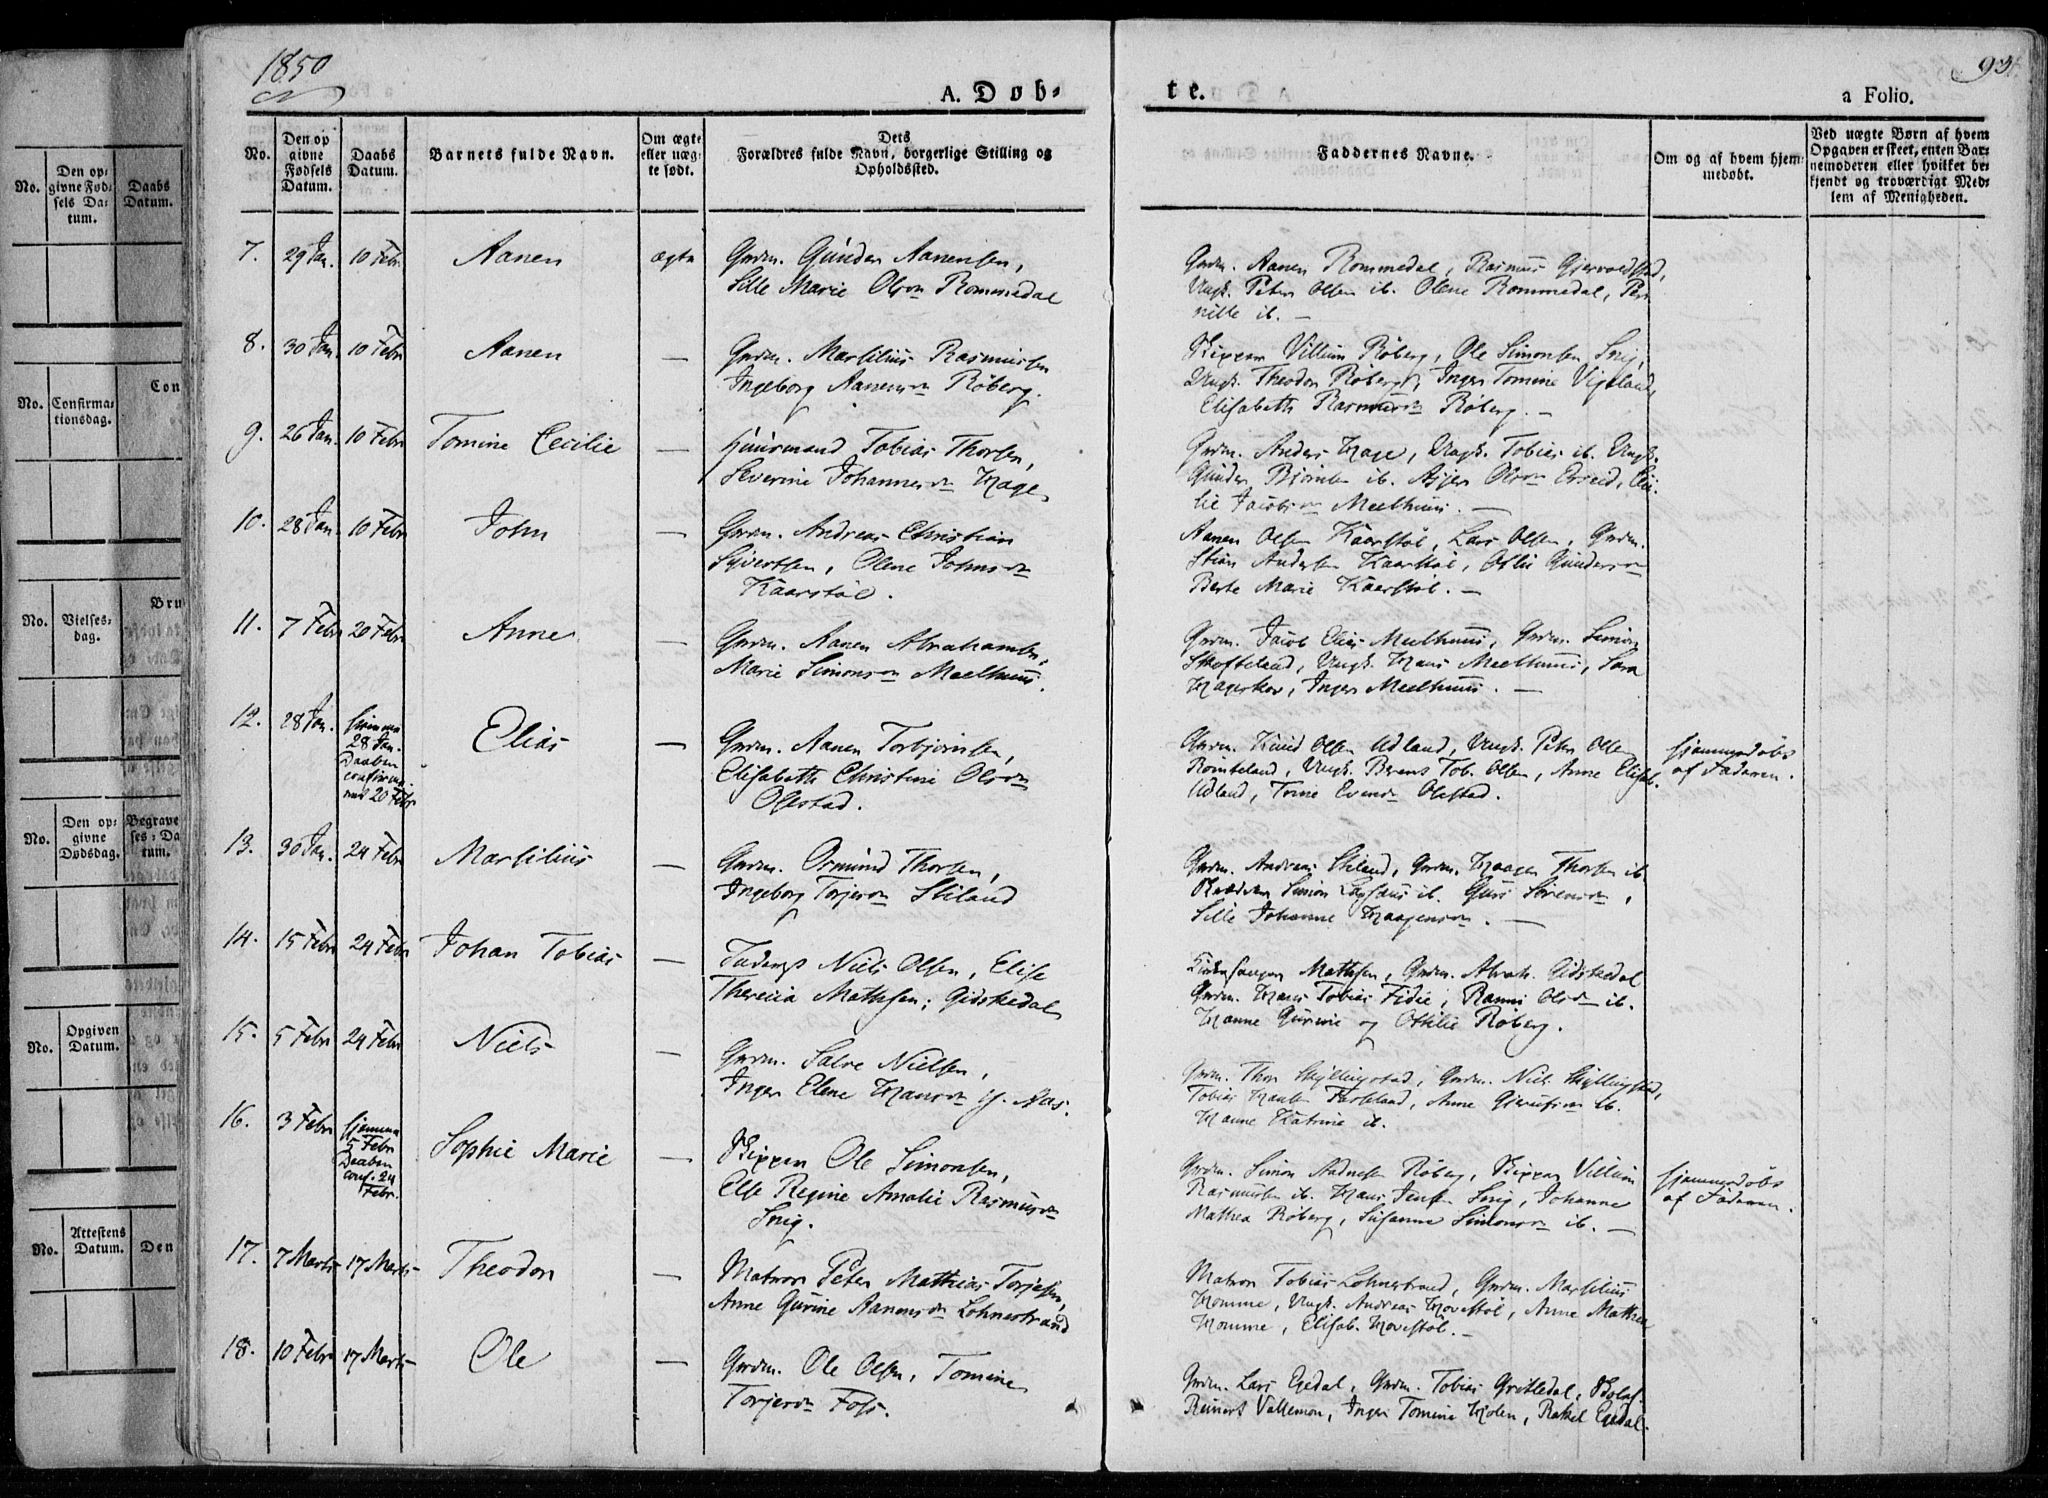 1850
93.
A. Døb-
te.
a Folio.
No.
Den op
givne
Fødsels
Datum.
Daabs
Datum.
Barnets fulde Navn.
Om ægte
eller uæg-
te født.
Dets
Forældres fulde Navn, borgerlige Stilling og
Opholdssted.
Faddernes Navne.
Om og af hvem hjem-
medøbt.
Ved uægte Børn af hvem
Opgaven er skeet, enten Bar-
nemoderen eller hvilket be-
kjendt og troværdigt Med-
lem af Menigheden.
7. 29 Jan. 10 Febr. Aanen ægte
Grdm. Gunder Aanensen,
Sille Marie Olsdr Rommedal
Grdm. Aanen Rommedal, Rasmus
Ungk. Peter Olsen ib. Olene Rommedal, Per-
nille ib. —
8. 30 Jan. 10 Febr Aanen —
Grdm. Marsilius Rasmussen
Ingeborg Aanensdr Røberg.
Skipper Villum Røberg, Ole Simonsen Snig,
Ungk. Theodor Røberg, Inger Tomine Vigeland,
Elisabeth Rasmusdr Røberg. —
9. 26 Jan. 10 Febr Tomine Cecilie —
Huusmand Tobias Thorsen,
Severine Johannesdr Hage
Grdm. Anders Hage, Ungk. Tobias ib. Ungk.
Gunder ib. Olsdr
lie Jacobsdr Meelhuus. —
10. 28 Jan. 10 Febr John —
Grdm. Andreas Christian
Syvertsen, Olene Johnsdr
Kaarstøl.
Aanen Olsen Kaarstøl, Lars Olsen, Grdm.
Stian Andersen Kaarstøl, Gundersdr
Berte Marie Kaarstøl. —
11. 7 Febr 20 Febr Anne —
Grdm. Aanen Abrahamsen,
Marie Simonsdr Meelhuus.
Grdm. Jacob Meelhuus, Grdm. Simon
Skofteland, Ungk. Hans Meelhuus, Sara
Hageskov, Inger Meelhuus. —
12. 28 Jan.
28 Jan.
Daaben
20 Febr
Elias —
Grdm. Aanen Torbjørnsen,
Elisabeth Christine Olsdr
Olestad.
Grdm. Knud Olsen Udland, Ungk. Peter Olsen
Ungk. Berent Tob. Olsen, Anne Elisab.
Udland, Tomine Olestad.
Hjemmedøbt
af Faderen.
13. 30 Jan. 24 Febr Marsilius —
Grdm. Osmund Thorsen,
Ingeborg Torjesdr Stiland
Grdm. Andreas Stiland, Grdm. Haagen Thorsen ib
Simon ib. Guri Sørensdr,
Sille Johanne Haagensdr. —
14. 15 Febr 24 Febr Johan Tobias —
Niels Olsen, Elise
Theresia Mathisen, Gidskedal
Kirkesanger Mathisen, Grdm. Abrah. Gidskedal
Grdm. Hans Tobias Fidie, Olsdr ib.
Hanne Gurine og Othilie Røberg.
15. 5 Febr 24 Febr Niels —
Grdm. Salve Nielsen,
Inger Elene Hansdr Aas.
Grdm. Thor Skyllingstad, Grdm. Niels Skyllingstad,
Tobias Hansen Fareland, Anne ib.
Hanne Katrine ib.
16. 3 Febr
Hjemme
5 Febr
Daaben
conf. 24
Febr.
Sophie Marie —
Skipper Ole Simonsen,
Else Regine Amalie Rasmusdr
Snig.
Grdm. Simon Røberg, Skipper Villum
Rasmussen ib. Hans Jensen Snig, Johanne
Mathea Røberg, Susanne Simonsdr ib. —
Hjemmedøbt
af Faderen.
17. 7 Marts 17 Marts Theodor —
Matros Peter Mathias Torjesen,
Anne Gurine Aanensdr Lohnestrand
Matros Tobias Lohnestrand, Grdm. Marsilius
Homme, Ungk. Andreas Hovstøl, Anne Mathea
Homme, Elisab. Hovstøl. —
18. 10 Febr 17 Marts Ole —
Grdm. Ole Olsen, Tomine
Torjesdr Foss.
Grdm. Lars Egedal, Grdm. Tobias Gritledal,
Reinert Vallemon, Inger Tomine Holen, Rakel Egedal.
No.
Den op-
givne Fød-
sels Da-
tum.
Daabs
Datum.
Con
No.
Confirma-
tionsdag.
Bru
No.
Vielses-
dag.
No.
Den op-
givne
Dødsdag.
Begrave
ses-Da
tum.
No.
Opgiven
Datum.
No.
Attestens
Datum.
Den